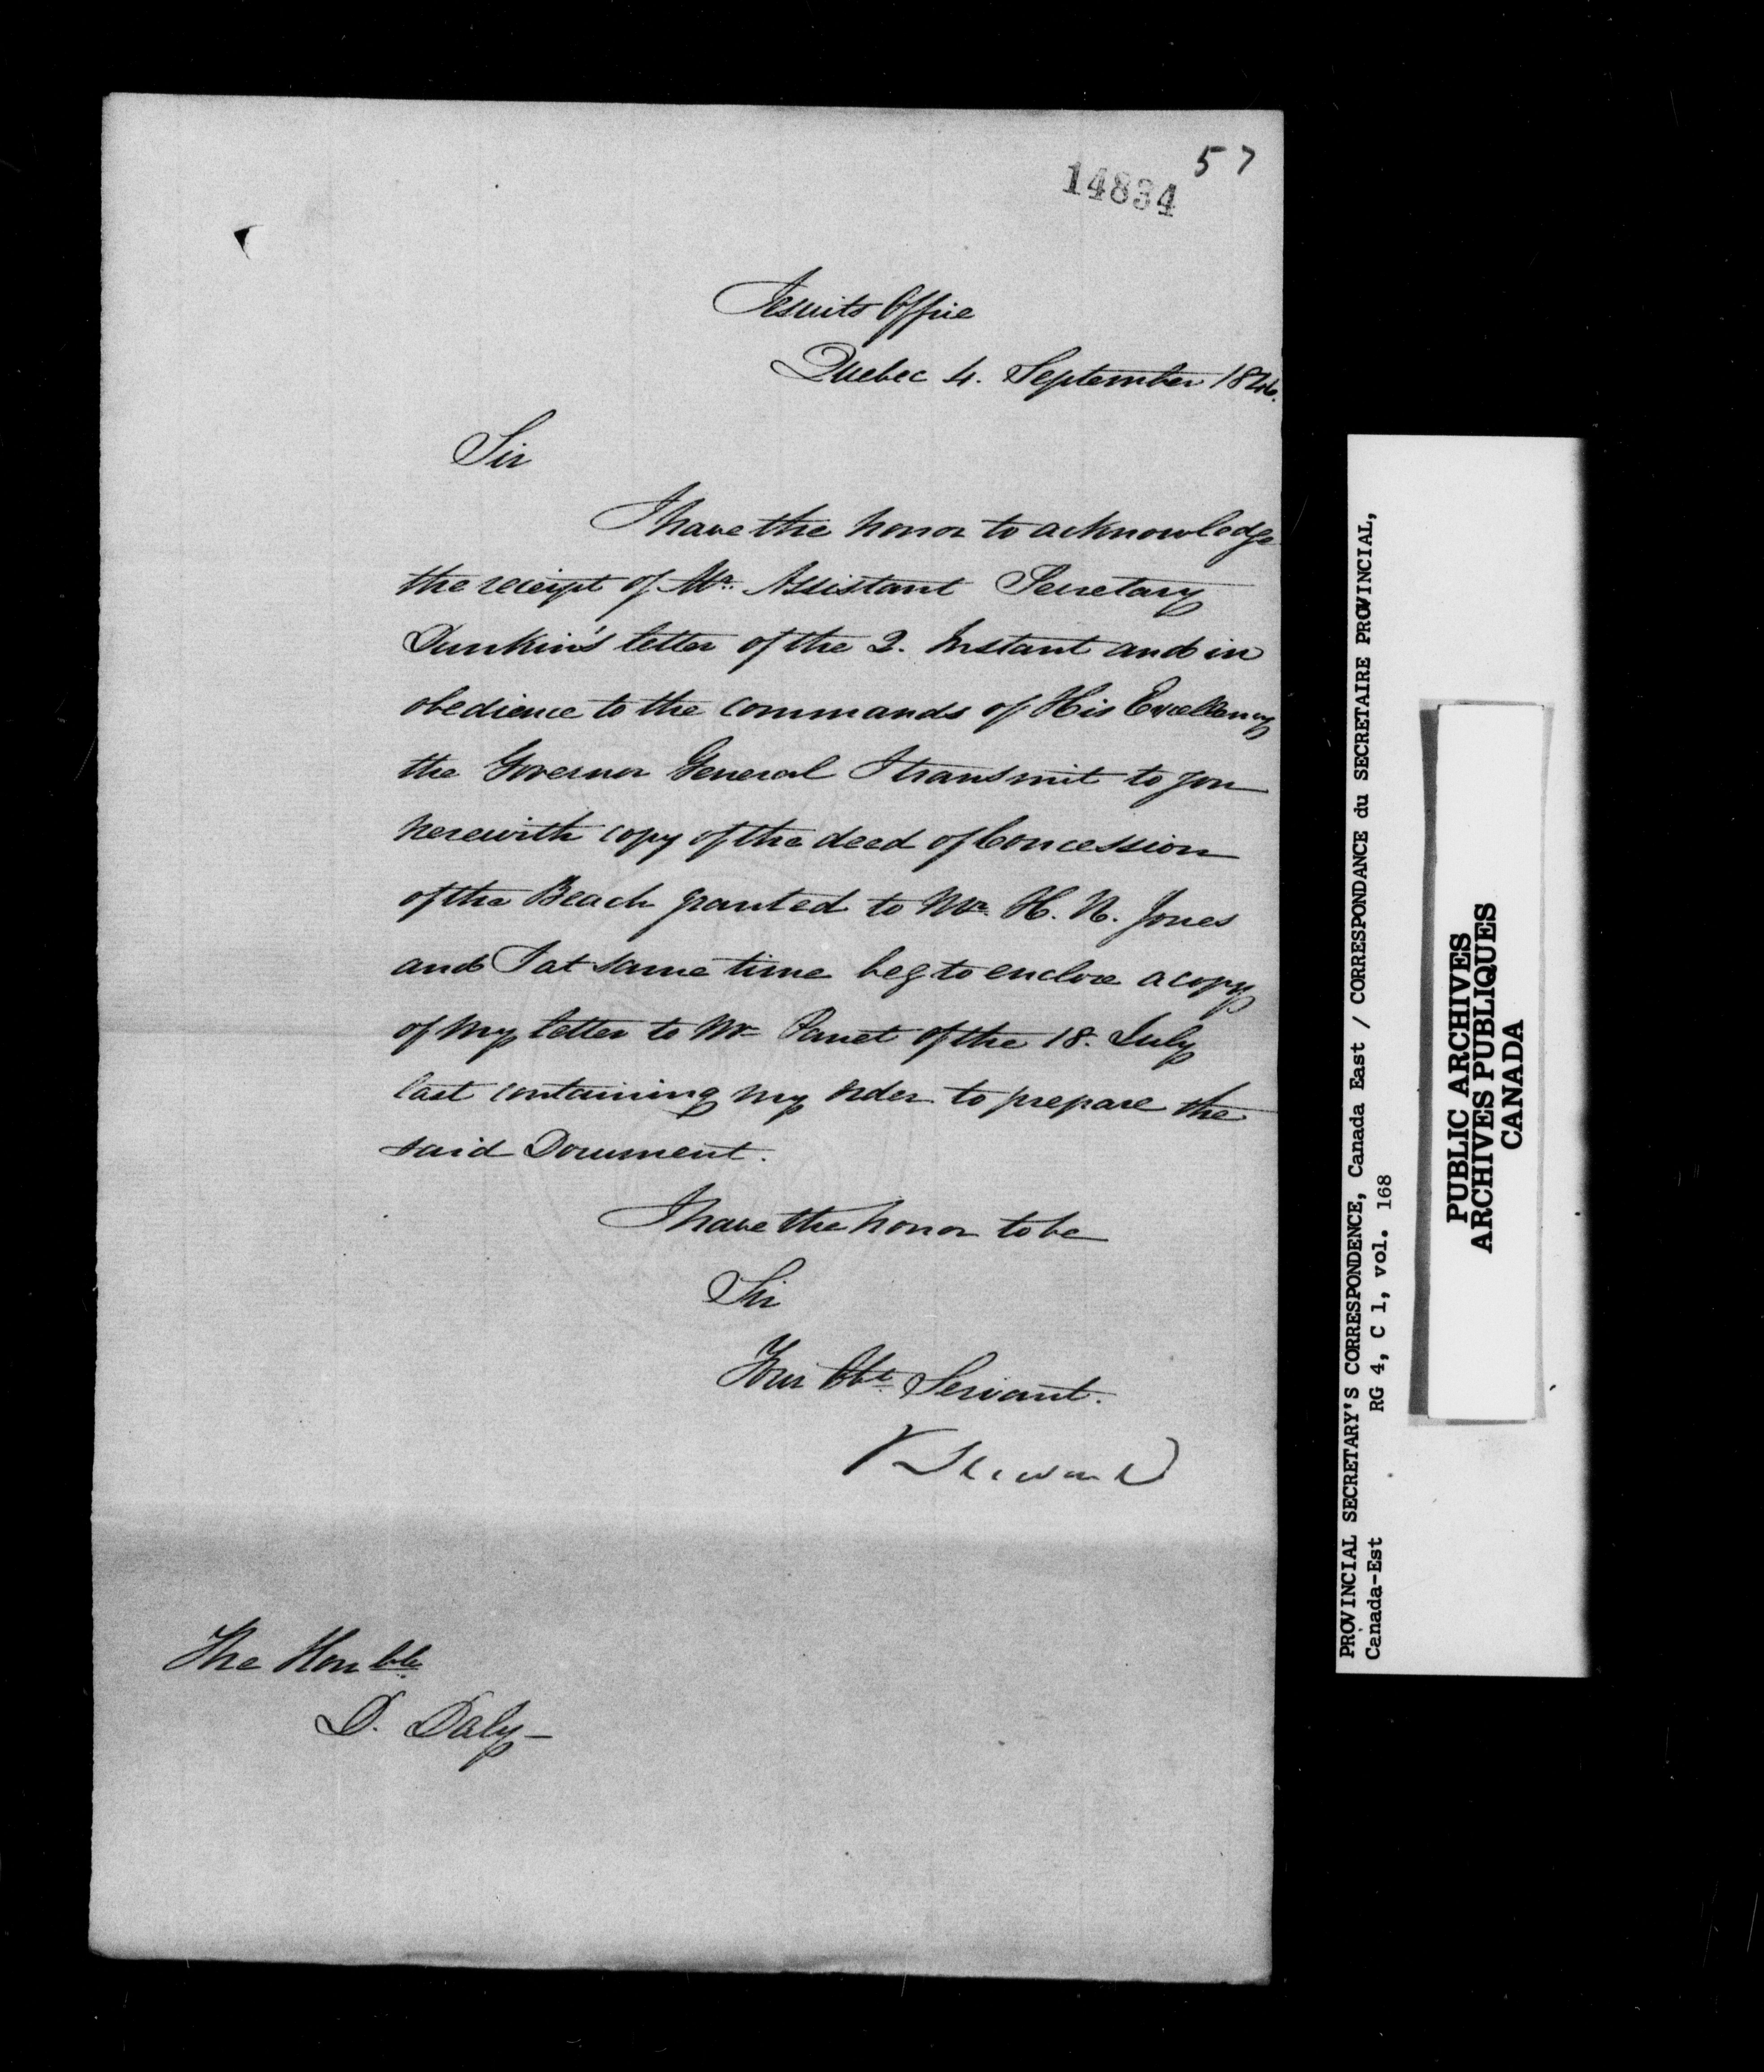 57
14834
Jesuits Office
Quebec 4. September 1846.
Sir
I have the honor to acknowledge
the receipt of Mr. Assistant Secretary
Dunkin's letter of the 2. Instant and in
obedience to the commands of His Excellency
the Governor General I transmit to you
herewith copy of the deed of Concession
of the Beach granted to Mr. H. N. Jones
and I at same time beg to enclose a copy
of my letter to Mr Panet of the 18. July
last containing my order to prepare the
said Document.
I have the honor to be
Sir
Your Obt. Servant.
The Honble
D. Daly
PROVINCIAL SECRETARY'S CORRESPONDENCE, Canada East / CORRESPONDANCE du SECRETAIRE PROVINCIAL,
Canada-Est RG 4, C 1, vol. 168
PUBLIC ARCHIVES
ARCHIVES PUBLIQUES
CANADA